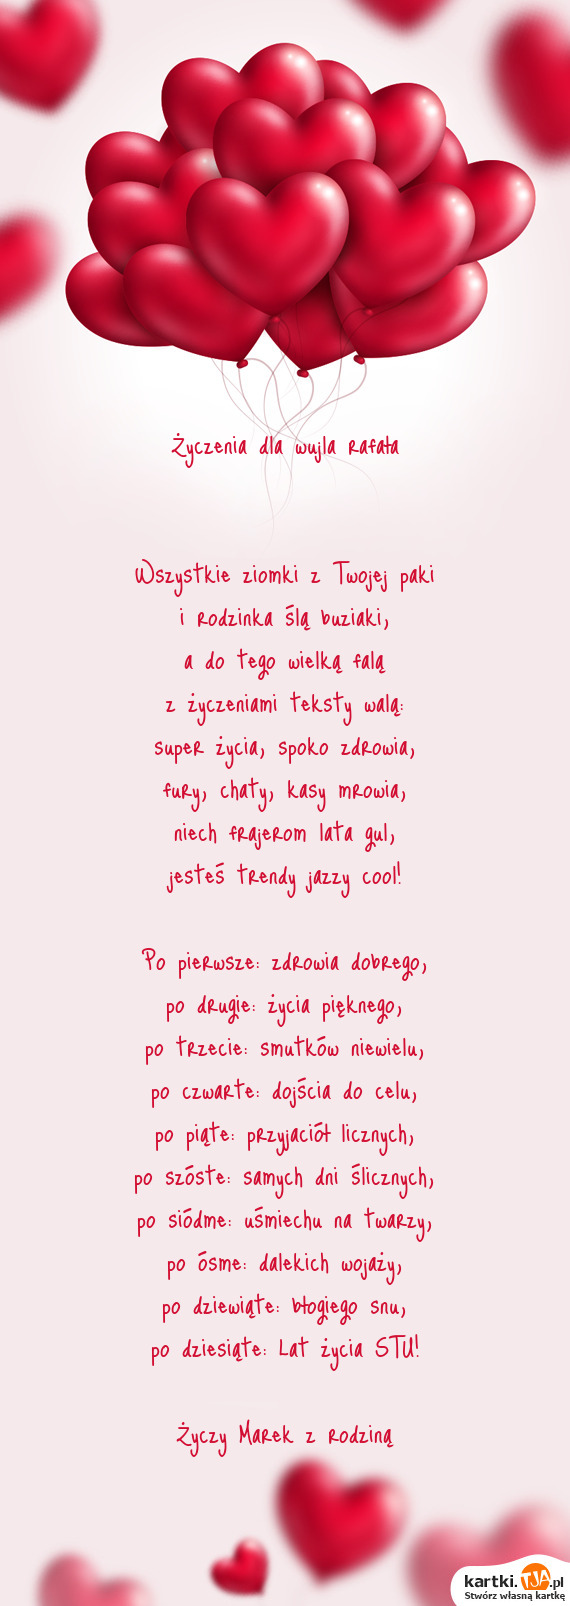 Życzenia dla wujla rafała
Wszystkie ziomki z Twojej paki
i rodzinka ślą buziaki,
a do tego wielką falą
z życzeniami teksty walą:
super życia, spoko zdrowia,
fury, chaty, kasy mrowia,
niech frajerom lata gul,
jesteś trendy jazzy cool!
Po pierwsze: zdrowia dobrego,
po drugie: życia pięknego,
po trzecie: smutków niewielu,
po czwarte: dojścia do celu,
po piąte: przyjaciół licznych,
po szóste: samych dni ślicznych,
po siódme: uśmiechu na twarzy,
po ósme: dalekich wojaży,
po dziewiąte: błogiego snu,
po dziesiąte: Lat życia STU!
Życzy Marek z rodziną
kartki.TJA.pl
Stwórz własną kartkę